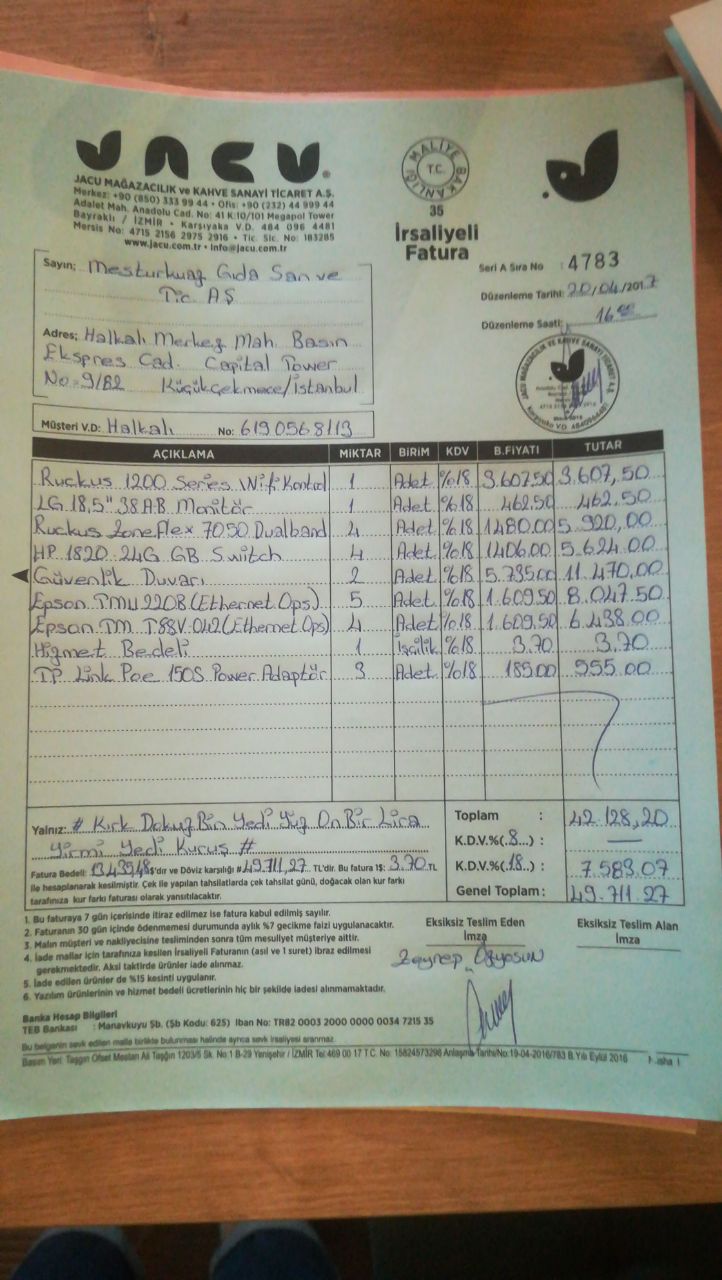 JACU
JACU MAĞAZACILIK ve KAHVE SANAYİ TİCARET A.Ş.
Merkez: +90 (850) 333 99 44 • Ofis: +90 (232) 44 999 44
Adalet Mah. Anadolu Cad. No: 41 K:10/101 Megapol Tower
Bayraklı / İZMİR • Karşıyaka V.D. 484 096 4481
Mersis No: 4715 2156 2975 2916 • Tic. Sic. No: 183285
www.jacu.com.tr • info@jacu.com.tr
MALİYE BAKANLIĞI
T.C.
35
İrsaliyeli
Fatura
Seri A Sıra No : 4783
Düzenleme Tarihi: 20/04/2017
Düzenleme Saati: 16.00
Sayın; Mesturkuaz Gıda San ve
Tic. AŞ
Adres; Halkalı Merkez Mah. Basın
Ekspres Cad. Capital Power
No=9/B2 Küçükçekmece/İstanbul
JACU MAĞAZACILIK VE KAHVE SANAYİ TİCARET A.Ş.
Müşteri V.D: Halkalı No: 6190568113
AÇIKLAMA MİKTAR BİRİM KDV B.FİYATI TUTAR
Ruckus 1200 Series Wifi Kontrol 1 Adet %18 3.607.50 3.607,50
LG 18,5" 38 A-B Monitör 1 Adet %18 462.50 462.50
Ruckus Zoneflex 7050 Dualband 4 Adet %18 1480.00 5.920,00
HP 1820 24G GB Switch 4 Adet %18 1406.00 5.624.00
Güvenlik Duvarı 2 Adet %18 5.735.00 11.470,00
Epson TMU 220B (Ethernet Ops) 5 Adet %18 1.609.50 8.047.50
Epson TM T88V-042 (Ethernet Ops) 4 Adet %18 1.609,50 6.438.00
Hizmet Bedeli 1 İşçilik %18 3.70 3.70
TP Link Poe 150S Power Adaptör 3 Adet %18 185.00 555.00
Yalnız: # Kırk Dokuz Bin Yedi Yüz On Bir Lira
Yirmi Yedi Kuruş #
Fatura Bedeli: 13.435,48 $'dır ve Döviz karşılığı #49.711,27 TL'dir. Bu fatura 1$: 3.70 TL
ile hesaplanarak kesilmiştir. Çek ile yapılan tahsilatlarda çek tahsilat günü, doğacak olan kur farkı
tarafınıza kur farkı faturası olarak yansıtılacaktır.
Toplam : 42.128,20
K.D.V.%(.8...) : —
K.D.V.%(.18..) : 7.583.07
Genel Toplam : 49.711.27
1. Bu faturaya 7 gün içerisinde itiraz edilmez ise fatura kabul edilmiş sayılır.
2. Faturanın 30 gün içinde ödenmemesi durumunda aylık %7 gecikme faizi uygulanacaktır.
3. Malın müşteri ve nakliyecisine tesliminden sonra tüm mesuliyet müşteriye aittir.
4. İade mallar için tarafınıza kesilen İrsaliyeli Faturanın (asıl ve 1 suret) ibraz edilmesi
gerekmektedir. Aksi taktirde ürünler iade alınmaz.
5. İade edilen ürünler de %15 kesinti uygulanır.
6. Yazılım ürünlerinin ve hizmet bedeli ücretlerinin hiç bir şekilde iadesi alınmamaktadır.
Eksiksiz Teslim Eden
İmza
Zeynep
Eksiksiz Teslim Alan
İmza
Banka Hesap Bilgileri
TEB Bankası : Manavkuyu Şb. (Şb Kodu: 625) Iban No: TR82 0003 2000 0000 0034 7215 35
Bu belgenin sevk edilen malla birlikte bulunması halinde ayrıca sevk irsaliyesi aranmaz.
Basım Yeri: Taşgın Ofset Mestan Ali Taşğın 1203/5 Sk. No:1 B-29 Yenişehir / İZMİR Tel:469 00 17 T.C. No: 15824573296 Anlaşma Tarihi/No:19-04-2016/783 B.Yılı Eylül 2016